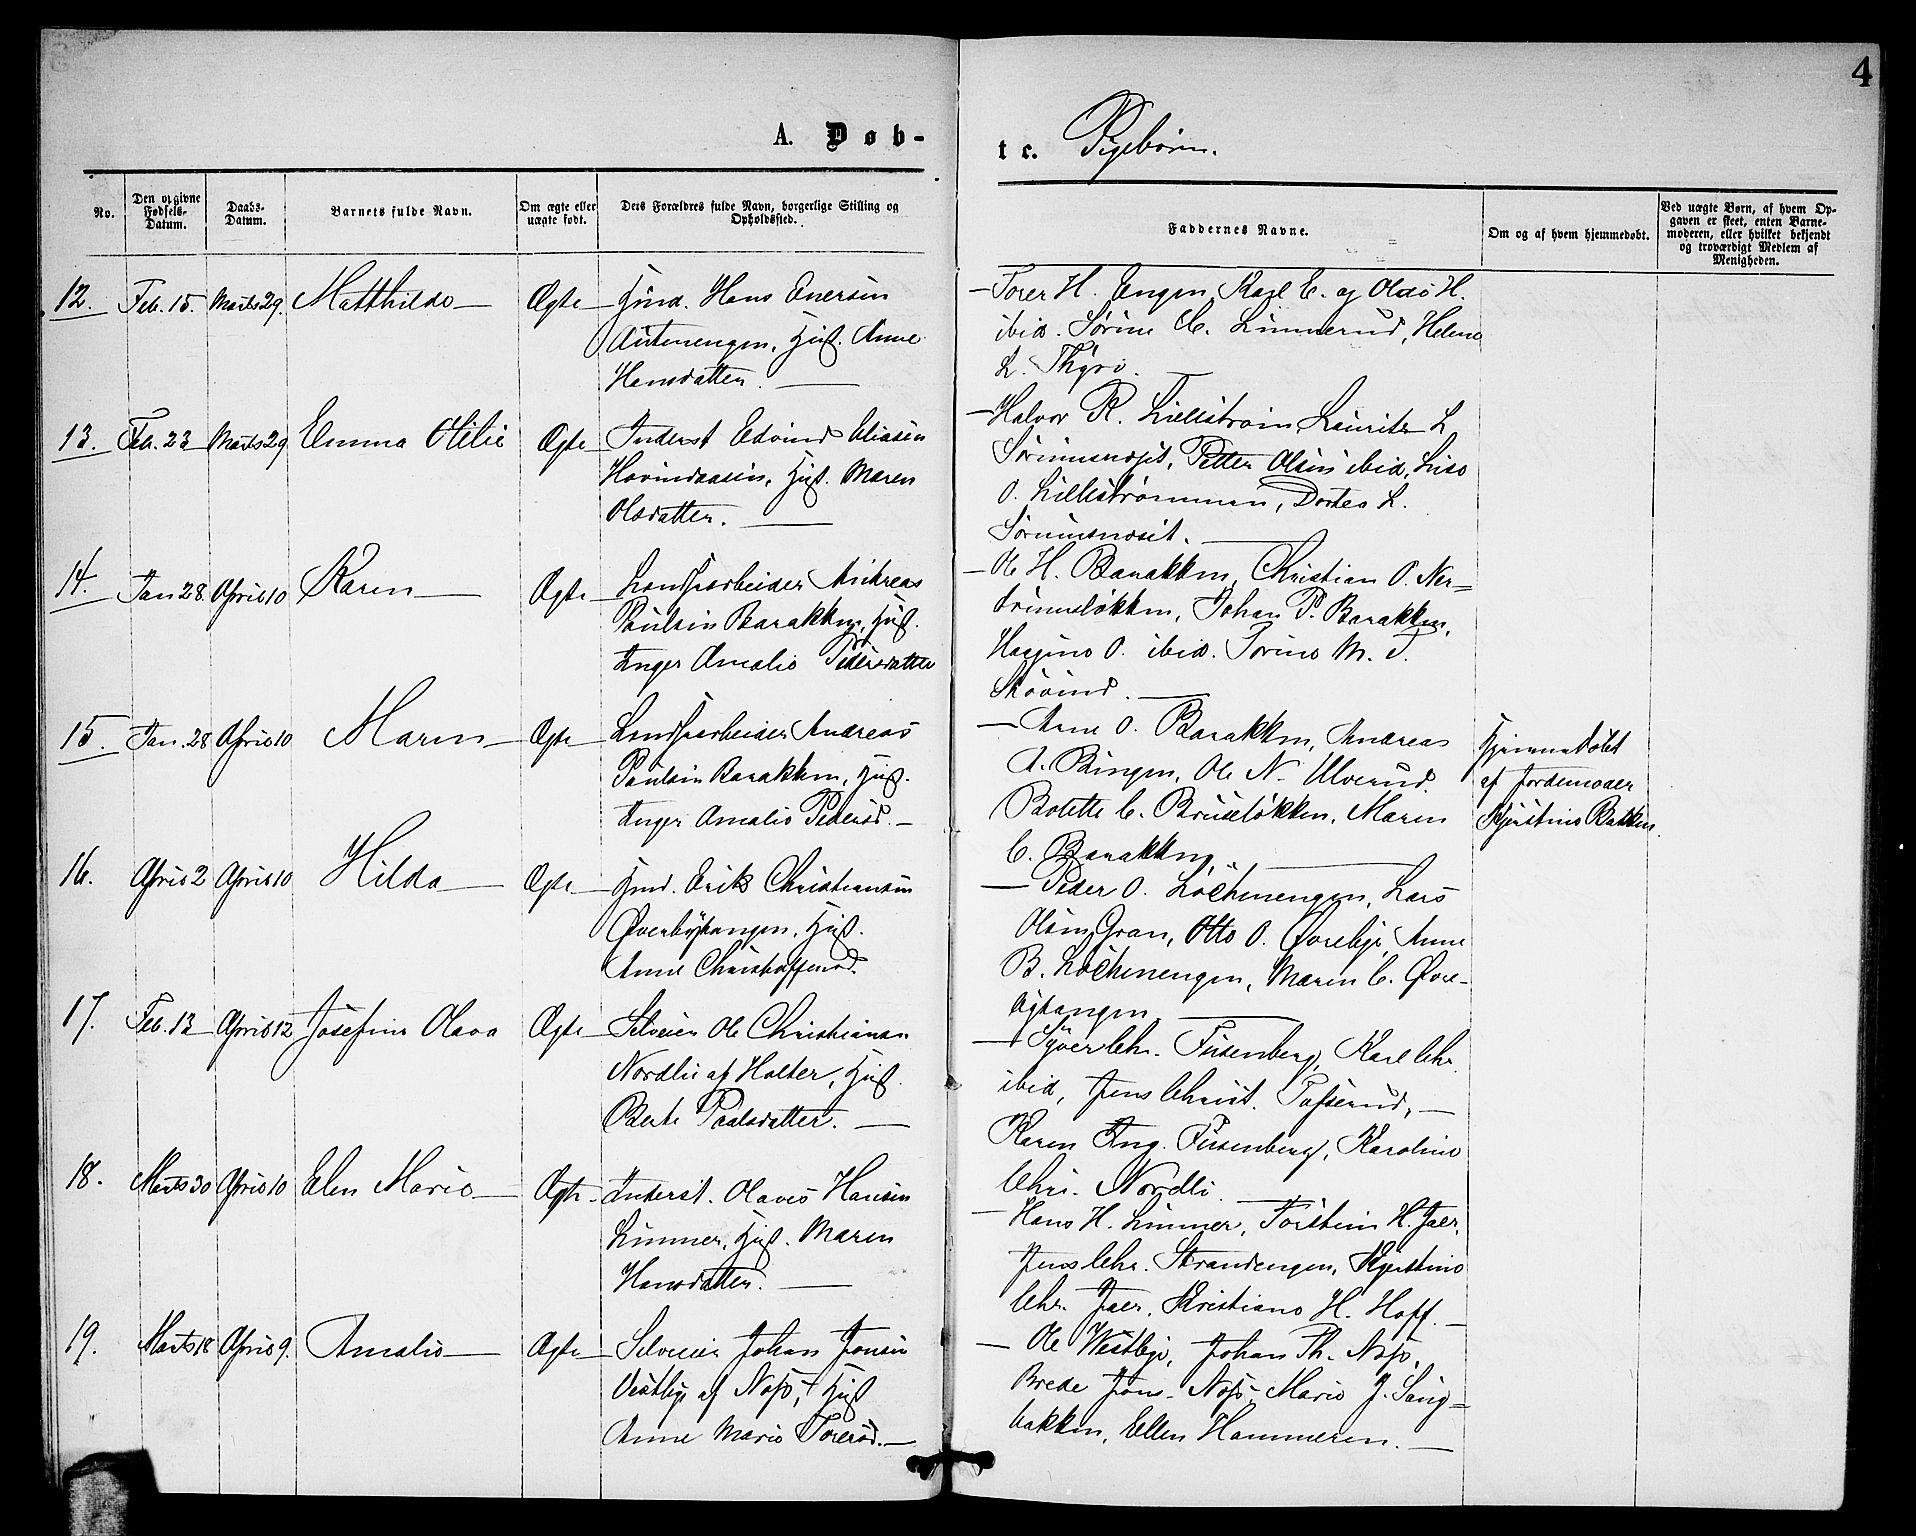 4
A. Døb-
te. Pigebørn.
No.
Den opgivne Fødsels-Datum.
Daabs-Datum.
Barnets fulde Navn.
Om ægte eller uægte født.
Dets Forældres fulde Navn, borgerlige Stilling og Opholdssted.
Faddernes Navne.
Om og af hvem hjemmedøbt.
Ved uægte Børn, af hvem Op-
gaven er skeet, enten Barne-
moderen, eller hvilket bekjendt
og troværdigt Medlem af
Menigheden.
12. Feb. 15. Marts 29. Matthilde Ægte
Hans Enersen
Hust. Anne
Hansdatter.
Torer H. Engen, Karl E. og H.
ibid. Sørine C. Linnerud, Helene
L. Thyri.
13. Feb. 23 Marts 29 Emma Otilie Ægte
Inderst Edvind Eliasen
Hovindaasen, Hust. Maren
Olsdatter.
Halvor R. Lillestrøm, Laurits L.
Petter Olsen ibid, Lise
O. Lillestrømmen, Dortea L.
14. Jan 28. April 10 Karen Ægte
Andreas
Paulsen Barakken, Hust.
Inger Amalie Pedersdatter
Ole H. Barakken, Christian O. Ner-
Johan P. Barakken,
O. ibid.
15. Jan. 28 April 10 Maren Ægte
Andreas
Paulsen Barakken, Hust.
Inger Amalie Pedersd.
Arne O. Barakken, Andreas
A. Bingen, Ole N. Ulverud.
Botette C. Bruseløkken, Maren
C. Barakken.
Hjemmedøbt
af Jordemoder
Kjerstine Bakken.
16. April 2 April 10 Hilda Ægte
Erik Christiansen
Øverbyhangen, Hust.
Anne Christoffersd.
Peder O. Lars
Olsen Gran, Otto O. Øvrebye, Anne
B. Maren C. Øvre-
byhangen
17. Feb. 13 April 12 Josefine Olava Ægte
Selveier Ole Christiansen
Nordlie af Holter, Hust.
Berte Paalsdatter.
Syver Chr. Frisenberg, Karl Chr.
ibid, Jens Christ.
Karen Ing. Frisenberg, Karoline
Chr. Nordli.
18. Marts 30 April 10 Elen Marie Ægte
Inderst. Olaves Hansen
Linner, Hust. Maren
Hansdatter.
Hans H. Linner, Torstein H. Jaer,
Jens Chr. Strandengen, Kjerstine
Chr. Jaer, Kristiane H. Hoff.
19. Marts 18 April 9. Amalie Ægte
Selveier Johan Jonsen
Vestbye af Nafs, Hust
Anne Marie Torersd.
Ole Westbye, Johan Th.
Brede Jons. Marie J.
bakken, Ellen Hammeren.